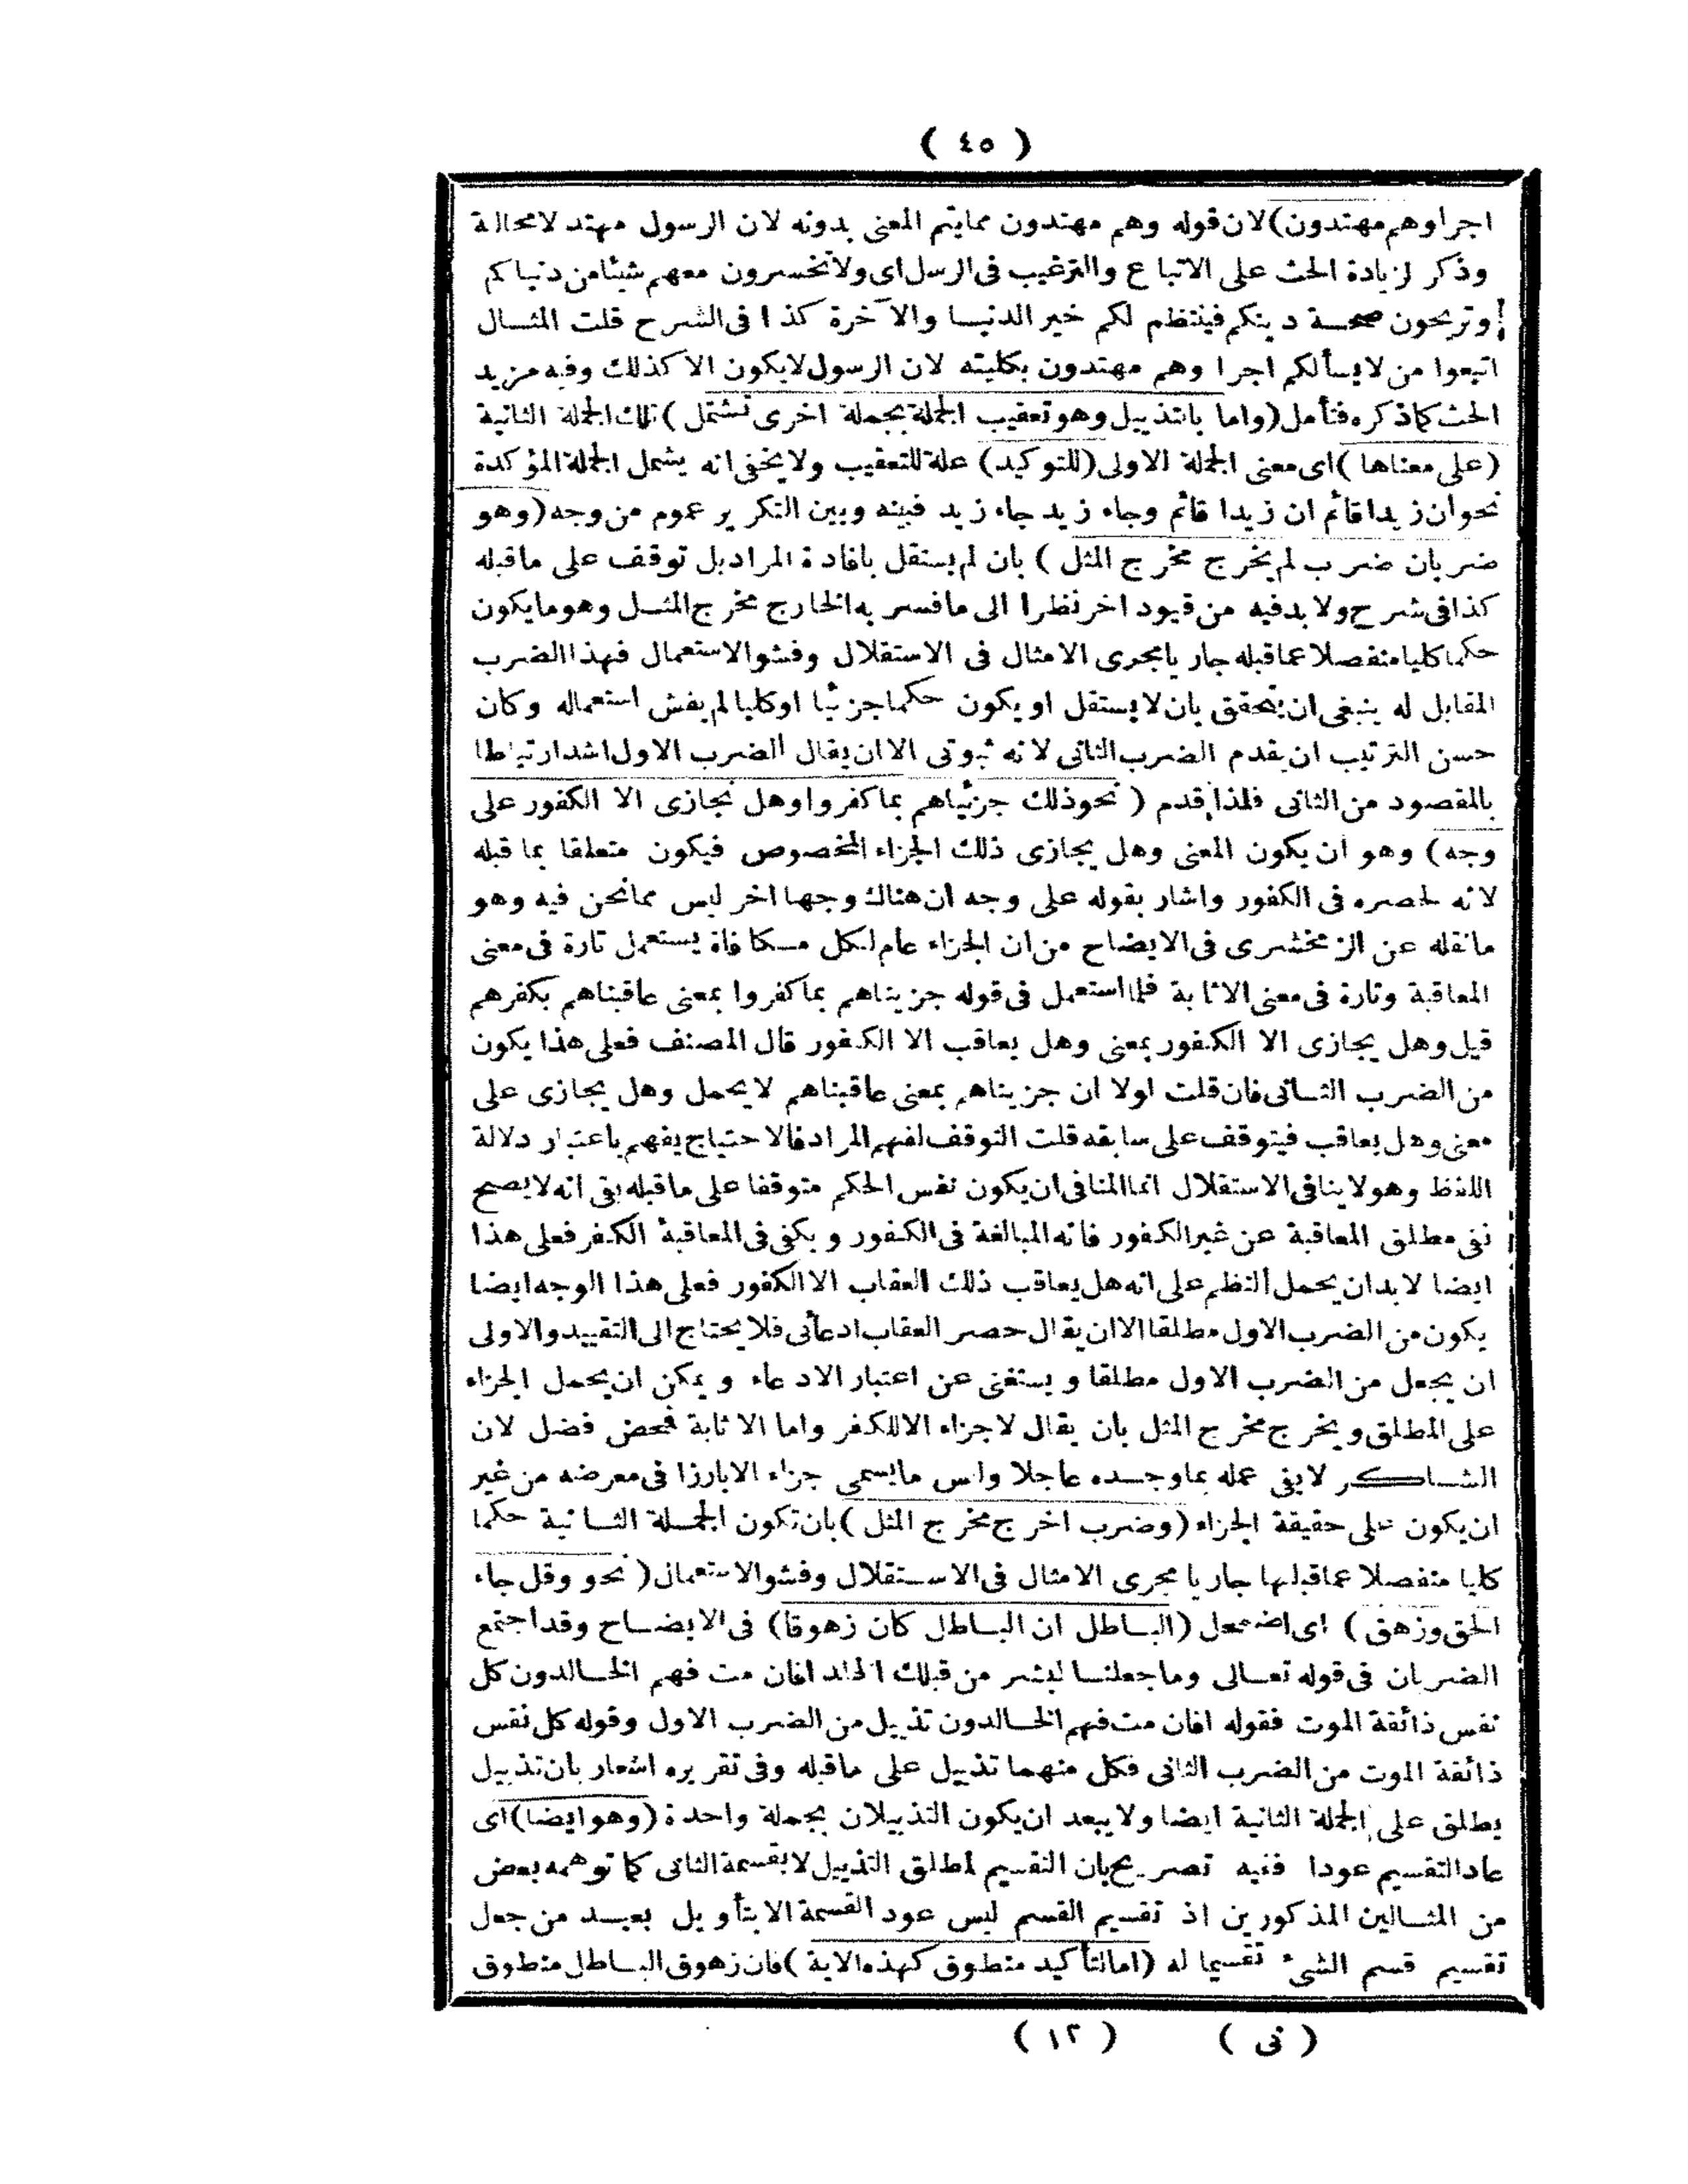 ( ٤٥ )
اجرا وهم مهتدون) لان قوله وهم مهتدون مما يتم المعنى بدونه لان الرسول مهتد لا محالة
وذكر لزيادة الحث على الاتباع والترغيب فى الرسل اى ولا تخسرون معهم شيئا من دنياكم
وتربحون صحة دينكم فينتظم لكم خير الدنيا والآخرة كذا فى الشرح قلت المثال
اتبعوا من لا يسألكم اجرا وهم مهتدون بكليته لان الرسول لا يكون الا كذلك وفيه مزيد
الحث كما ذكره فتأمل (واما بالتذييل وهو تعقيب الجملة بجملة اخرى تشتمل) تلك الجملة الثانية
(على معناها) اى معنى الجملة الاولى (للتوكيد) علة للتعقيب ولا يخفى انه يشمل الجملة المؤكدة
نحو ان زيدا قائم ان زيدا قائم وجاء زيد جاء زيد فبينه وبين التكرير عموم من وجه (وهو
ضربان ضرب لم يخرج مخرج المثل) بان لم يستقل بافادة المراد بل توقف على ما قبله
كذا فى شرح ولا بد فيه من قيود اخر نظرا الى ما فسر به الخارج مخرج المثل وهو ما يكون
حكما كليا منفصلا عما قبله جاريا مجرى الامثال فى الاستقلال وفشو الاستعمال فهذا الضرب
المقابل له ينبغى ان يتحقق بان لا يستقل او يكون حكما جزئيا او كليا لم يفش استعماله وكان
حسن الترتيب ان يقدم الضرب الثانى لانه ثبوتى الا ان يقال الضرب الاول اشد ارتباطا
بالمقصود من الثانى فلذا قدم (نحو ذلك جزيناهم بما كفروا وهل نجازى الا الكفور على
وجه) وهو ان يكون المعنى وهل يجازى ذلك الجزاء المخصوص فيكون متعلقا بما قبله
لانه لحصره فى الكفور واشار بقوله على وجه ان هناك وجها اخر ليس مما نحن فيه وهو
ما نقله عن الزمخشرى فى الايضاح من ان الجزاء عام لكل مكافاة يستعمل تارة فى معنى
المعاقبة وتارة فى معنى الاثابة فلما استعمل فى قوله جزيناهم بما كفروا بمعنى عاقبناهم بكفرهم
قيل وهل يجازى الا الكفور بمعنى وهل يعاقب الا الكفور قال المصنف فعلى هذا يكون
من الضرب الثانى فان قلت اولا ان جزيناهم بمعنى عاقبناهم لا يحمل وهل يجازى على
معنى وهل يعاقب فيتوقف على سابقه قلت التوقف لفهم المراد فالاحتياج يفهم باعتبار دلالة
اللفظ وهو لا ينافى الاستقلال انما المنافى ان يكون نفس الحكم متوقفا على ما قبله بقى انه لا يصح
نفى مطلق المعاقبة عن غير الكفور فانه المبالغة فى الكفور و يكفى فى المعاقبة الكفر فعلى هذا
ايضا لا بد ان يحمل النظم على انه هل يعاقب ذلك العقاب الا الكفور فعلى هذا الوجه ايضا
يكون من الضرب الاول مطلقا الا ان يقال حصر العقاب ادعائى فلا يحتاج الى التقييد والاولى
ان يجعل من الضرب الاول مطلقا و يستغنى عن اعتبار الادعاء و يمكن ان يحمل الجزاء
على المطلق و يخرج مخرج المثل بان يقال لا جزاء الا للكفر واما الاثابة فمحض فضل لان
الشاكر لا يفى عمله بما وجده عاجلا وليس ما يسمى جزاء الا بارزا فى معرضه من غير
ان يكون على حقيقة الجزاء (وضرب اخرج مخرج المثل) بان تكون الجملة الثانية حكما
كليا منفصلا عما قبلها جاريا مجرى الامثال فى الاستقلال وفشو الاستعمال (نحو وقل جاء
الحق وزهق) اى اضمحل (الباطل ان الباطل كان زهوقا) فى الايضاح وقد اجتمع
الضربان فى قوله تعالى وما جعلنا لبشر من قبلك الخلد افان مت فهم الخالدون كل
نفس ذائقة الموت فقوله افان مت فهم الخالدون تذييل من الضرب الاول وقوله كل نفس
ذائقة الموت من الضرب الثانى فكل منهما تذييل على ما قبله وفى تقريره اشعار بان تذييل
يطلق على الجملة الثانية ايضا ولا يبعد ان يكون التذييلان بجملة واحدة (وهو ايضا) اى
عاد التقسيم عودا ففيه تصريح بان التقسيم لمطلق التذييل لا بقسمة الثانى كما توهمه بعض
من المثالين المذكورين اذ تقسيم القسم ليس عود القسمة الا بتأويل بعيد من جعل
تقسيم قسم الشىء تقسيما له (اما لتأكيد منطوق كهذه الاية) فان زهوق الباطل منطوق
( نى ) ( ١٢ )